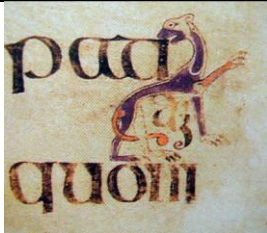 pati
quoni